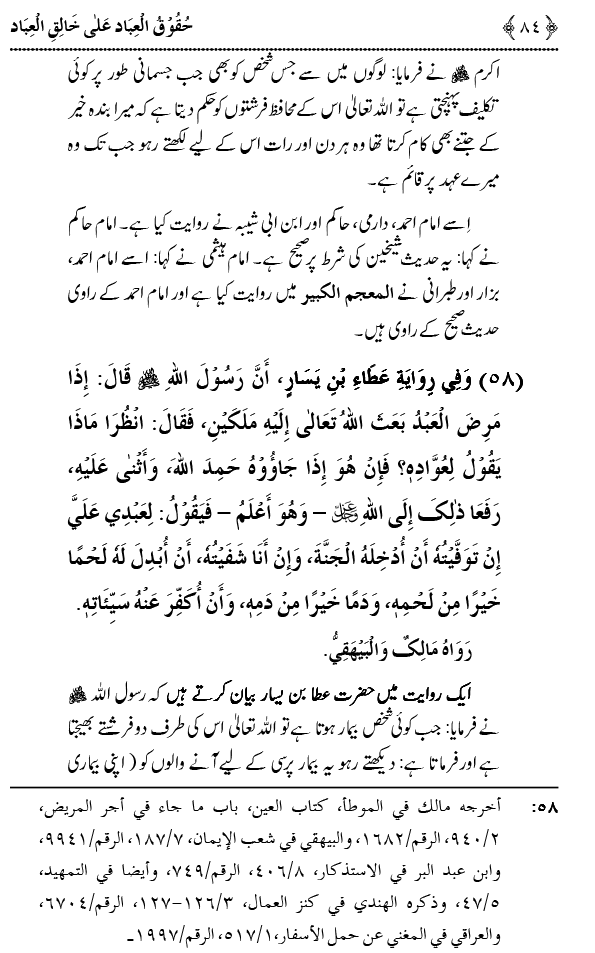 ﴿٨٤﴾ حُقُوْقُ الْعِبَاد عَلٰى خَالِقِ الْعِبَاد
اکرم ﷺ نے فرمایا: لوگوں میں سے جس شخص کو بھی جب جسمانی طور پر کوئی
تکلیف پہنچتی ہے تو اللہ تعالیٰ اس کے محافظ فرشتوں کو حکم دیتا ہے کہ میرا بندہ خیر
کے جتنے بھی کام کرتا تھا وہ ہر دن اور رات اس کے لیے لکھتے رہو جب تک وہ
میرے عہد پر قائم ہے۔
اِسے امام احمد، دارمی، حاکم اور ابن ابی شیبہ نے روایت کیا ہے۔ امام حاکم
نے کہا: یہ حدیث شیخین کی شرط پر صحیح ہے۔ امام ہیثمی نے کہا: اسے امام احمد،
بزار اور طبرانی نے المعجم الکبیر میں روایت کیا ہے اور امام احمد کے راوی
حدیث صحیح کے راوی ہیں۔
(٥٨) وَفِي رِوَايَةِ عَطَاءِ بْنِ يَسَارٍ، أَنَّ رَسُوْلَ اللهِ ﷺ قَالَ: إِذَا
مَرِضَ الْعَبْدُ بَعَثَ اللهُ تَعَالٰى إِلَيْهِ مَلَكَيْنِ، فَقَالَ: انْظُرَا مَاذَا
يَقُوْلُ لِعُوَّادِهٖ؟ فَإِنْ هُوَ إِذَا جَاؤُوْهُ حَمِدَ اللهَ، وَأَثْنٰى عَلَيْهِ،
رَفَعَا ذٰلِكَ إِلَى اللهِ ﷻ – وَهُوَ أَعْلَمُ – فَيَقُوْلُ: لِعَبْدِي عَلَيَّ
إِنْ تَوَفَّيْتُهٗ أَنْ أُدْخِلَهُ الْجَنَّةَ، وَإِنْ أَنَا شَفَيْتُهٗ، أَنْ أُبْدِلَ لَهٗ لَحْمًا
خَيْرًا مِنْ لَحْمِهٖ، وَدَمًا خَيْرًا مِنْ دَمِهٖ، وَأَنْ أُكَفِّرَ عَنْهُ سَيِّئَاتِهٖ.
رَوَاهُ مَالِكٌ وَالْبَيْهَقِيُّ.
ایک روایت میں حضرت عطا بن یسار بیان کرتے ہیں کہ رسول اللہ ﷺ
نے فرمایا: جب کوئی شخص بیمار ہوتا ہے تو اللہ تعالیٰ اس کی طرف دو فرشتے بھیجتا
ہے اور فرماتا ہے: دیکھتے رہو یہ بیمار پرسی کے لیے آنے والوں کو (اپنی بیماری
٥٨: أخرجه مالك في الموطأ، كتاب العين، باب ما جاء في أجر المريض،
٢/٩٤٠، الرقم/١٦٨٢، والبيهقي في شعب الإيمان، ٧/١٨٧، الرقم/٩٩٤١،
وابن عبد البر في الاستذكار، ٨/٤٠٦، الرقم/٧٤٩، وأيضا في التمهيد،
٥/٤٧، وذكره الهندي في كنز العمال، ٣/١٢٦-١٢٧، الرقم/٦٧٠٤،
والعراقي في المغني عن حمل الأسفار، ١/٥١٧، الرقم/١٩٩٧۔